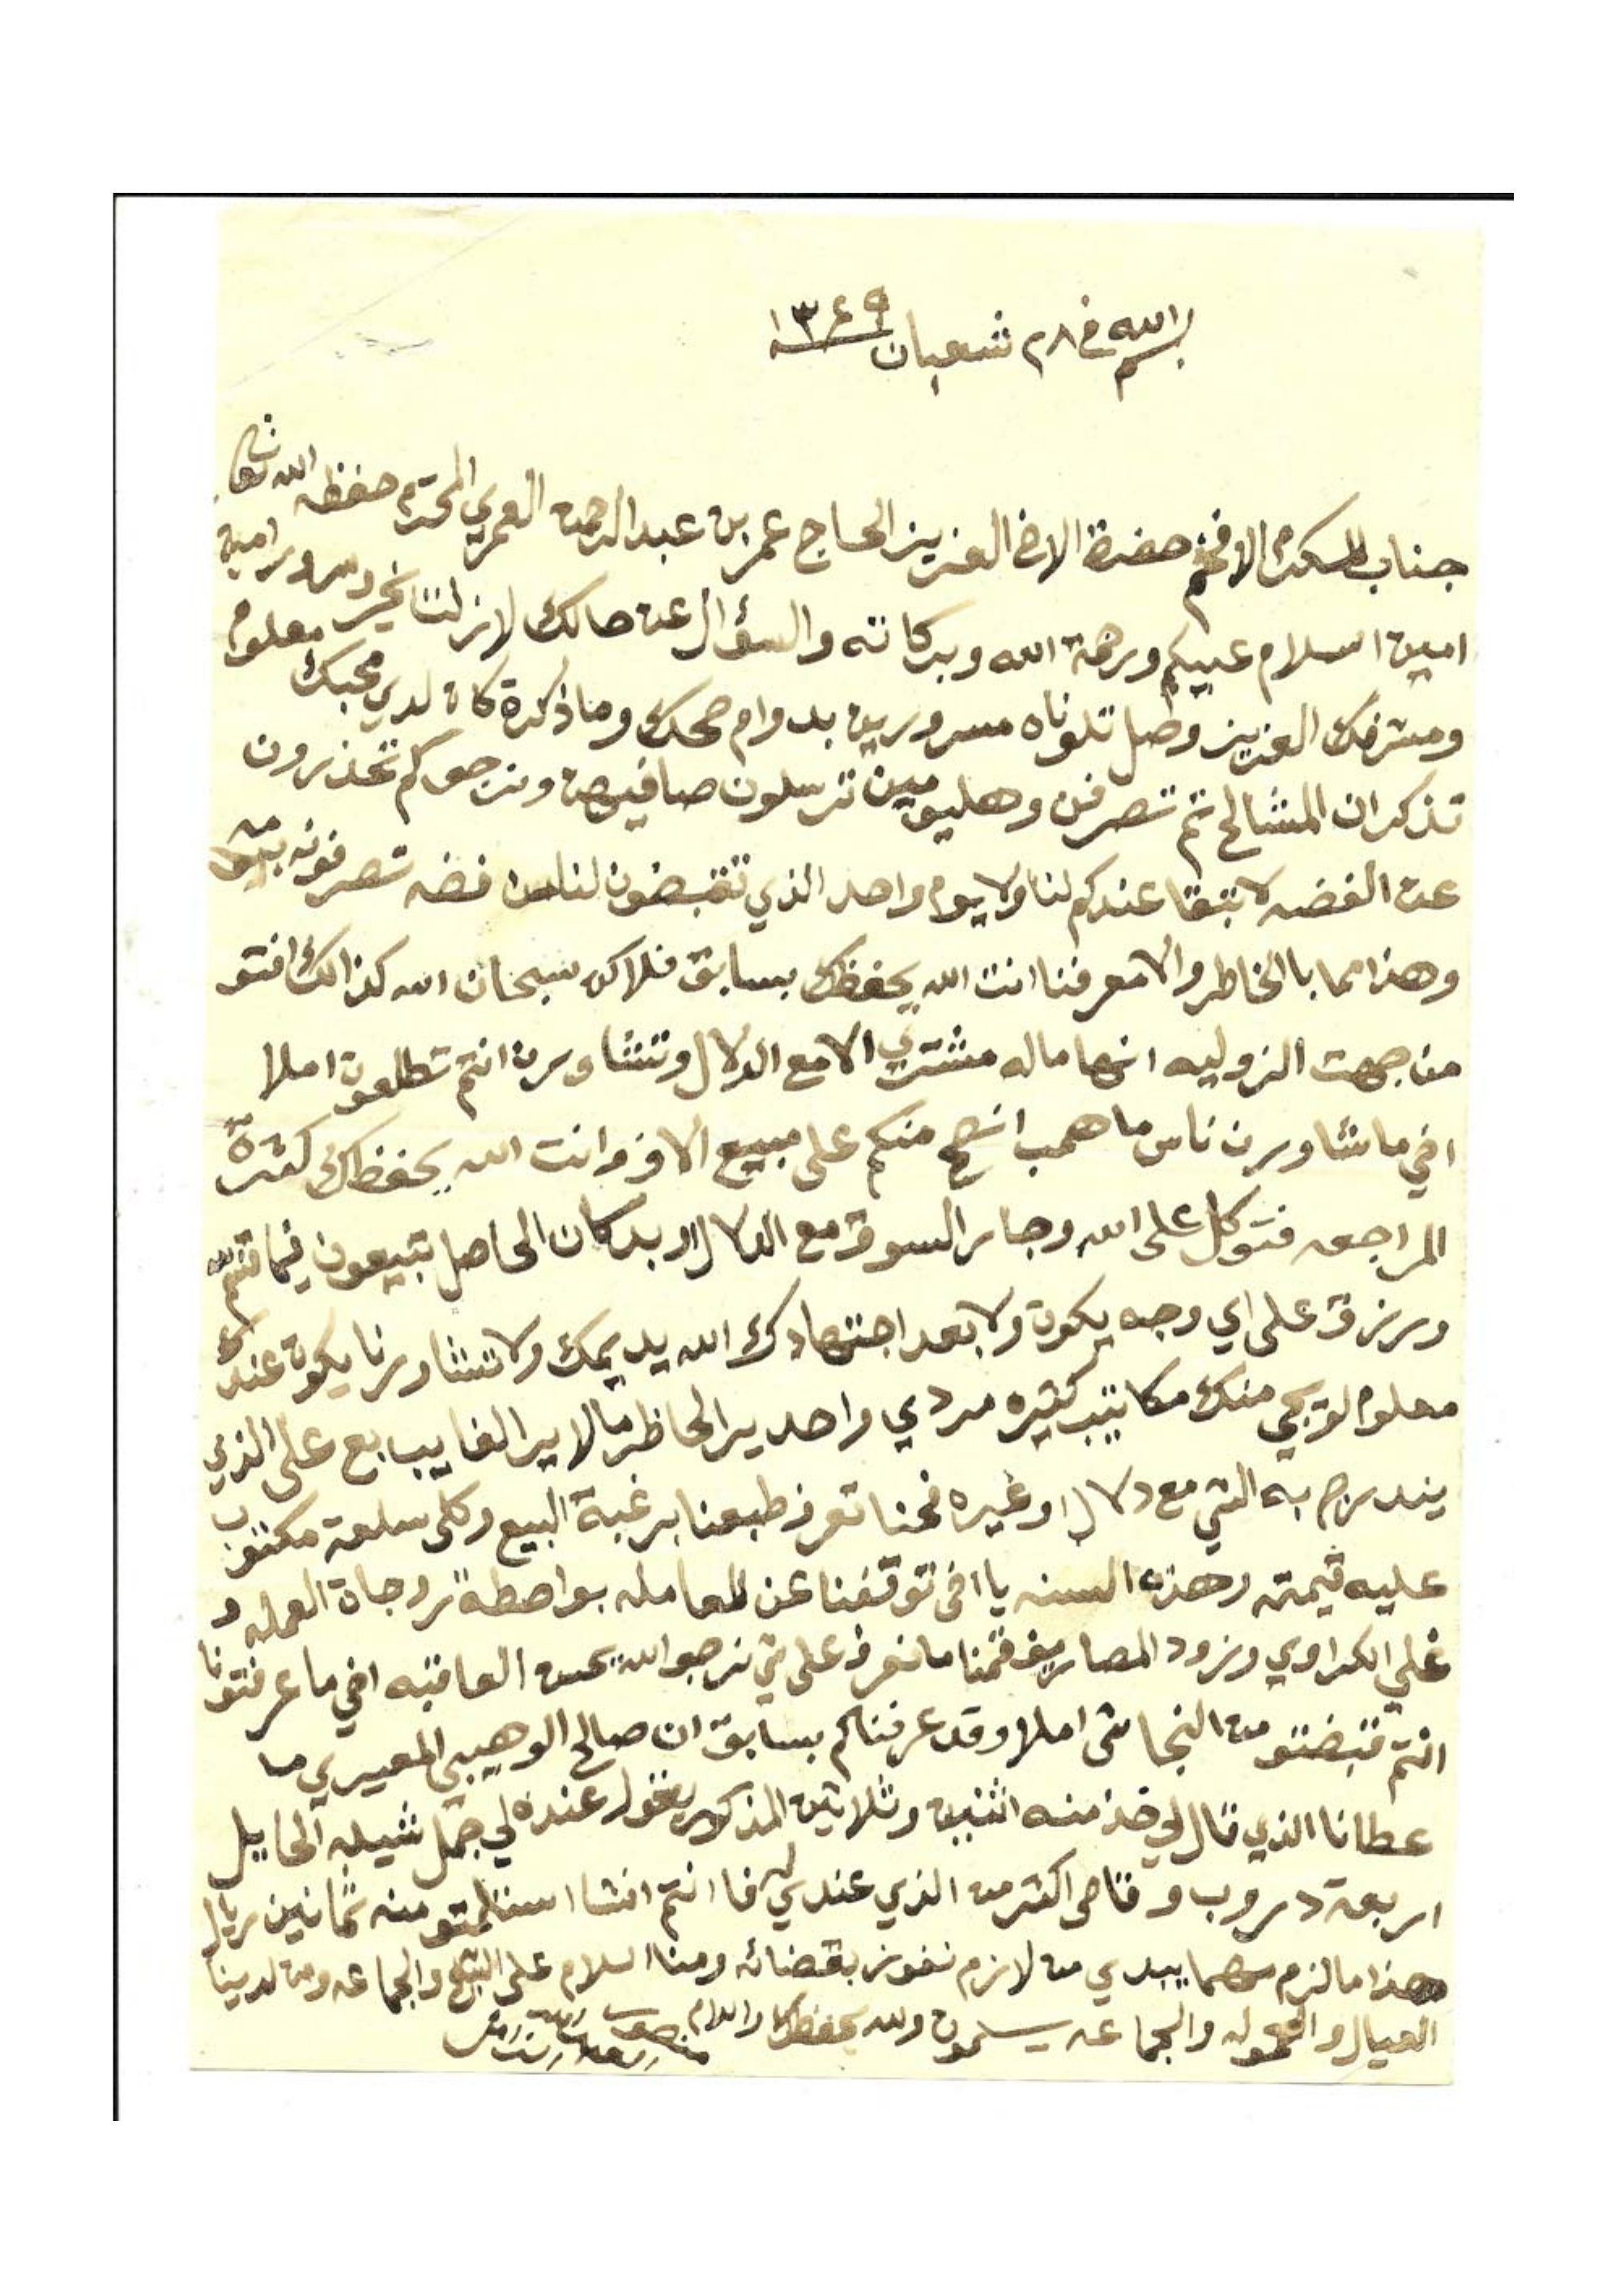 بسم الله في ٢٨ شعبان ١٣٤٩
جناب المكرم الافخم حضرة الاخ العزيز الحاج عمر بن عبدالرحمن العمري المحترم حفظه الله تعالى
امين السلام عليكم ورحمة الله وبركاته والسؤال عن حالك لازلت بخير وسرور امين
ومشرفك العزيز وصل تلوناه مسرورين بدوام صحتك وما ذكرة كان لدي محبك معلوم
تذكر ان المشالح تم تصرفن وهليومين ترسلون صافيهن ونرجوكم تحذرون
عن الفضه لا تبقا عندكم لنا ولا يوم واحد الذي تقبضون لنا فضه تصرفونه
وهذا مما بالخاطر والا معرفنا انت الله يحفظك بسابق فلاكن سبحان الله كذالك افتو
من جهت الزوليه انها ماله مشتري الا مع الدلال وتشاورن انتم تطلعون املا
اخي ما نشاورن ناس ما همب انصح منكم على مبيع الا وانت الله يحفظك كثرة
المراجعه فتوكل على الله وجابر السوق مع الدلال او بدكان الحاصل تبيعون فيما قسم الله
ورزق على اي وجه يكون ولا بعد اجتهادك الله يديمك ولا تشاورنا يكون عندك
معلوم لو يجي منك مكاتيب كثيره مردي واحد يرا الحاظر مالا يرا الغايب بع على الذي
يندرج به الشي مع دلال او غيره فحنا تعرف طبعنا برغبة البيع وكل سلعة مكتوب
عليه قيمته وهذه السنه يا اخي توقفنا عن المعامله بواصطة روجان العمله و
غلي الكراوي وزود المصاريف قمنا ما نعرف على شي نرجوا الله بحسن العاقبه اخي ما عرفتونا
انتم قبضتو من النجا شي املا وقد عرفناكم بسابق ان صالح الوهيبي المعيبري ما
عطانا الذي قال لي خذ منه اثنين وثلاثين المذكور يقول عنده لي جمل شيله الحايل
اربعة دروب وقاضي اكثر من الذي عندي له فا انتم انشا استلمتو منه ثمانين ريال
هذا ما لزم مهما يبدي من لازم نفوز بقضائه ومنا السلام على الشيخ والجماعه ومن لدينا
العيال والحموله والجماعه يسلمون والله يحفظك والسلام